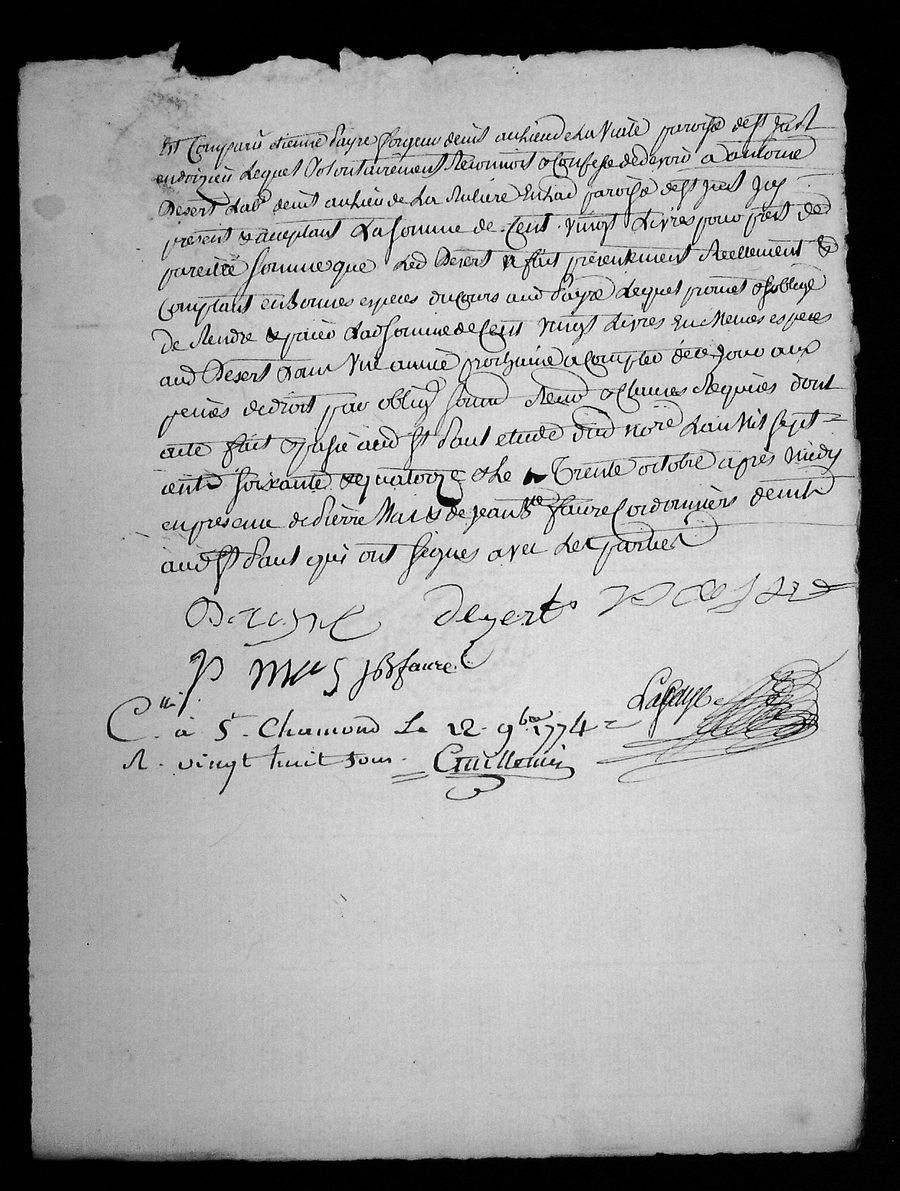 Est Comparu etienne payre forgeur demt au lieu de La Viale paroisse de st Just
en doizieu Lequel Volontairement Reconnoit & Confesse debvoir a antoine
Desert Labr demt au lieu de La paroisse de st Just Icy
present & acceptant La somme de Cent vingt Livres pour pret de
pareille somme que Led Desert a fait presentement Reellement &
Comptant en Bonnes especes du Cours aud payre Lequel promet & soblige
De Rendre & païer Lad somme de Cent vingt Livres En Memes especes
aud Desert dans Une année prochaine a Compter de Ce Jour aux
peines de droit par oblig soumd Renon & Clauses Requises dont
acte fait & passé aud st paul etude dud nore Lan Mil sept=
cents soixante & quatorze & Le Trente octobre après Midy
en presence de pierre Mas & de Jean Bte faure Cordonniers demt
aud st paul qui ont signés avec Les parties
dezert payre
P MAS JB faure
Lafaye
C. lle à St Chamond Le 12 9bre 1774 =
R. vingt huit sous = Guillemin